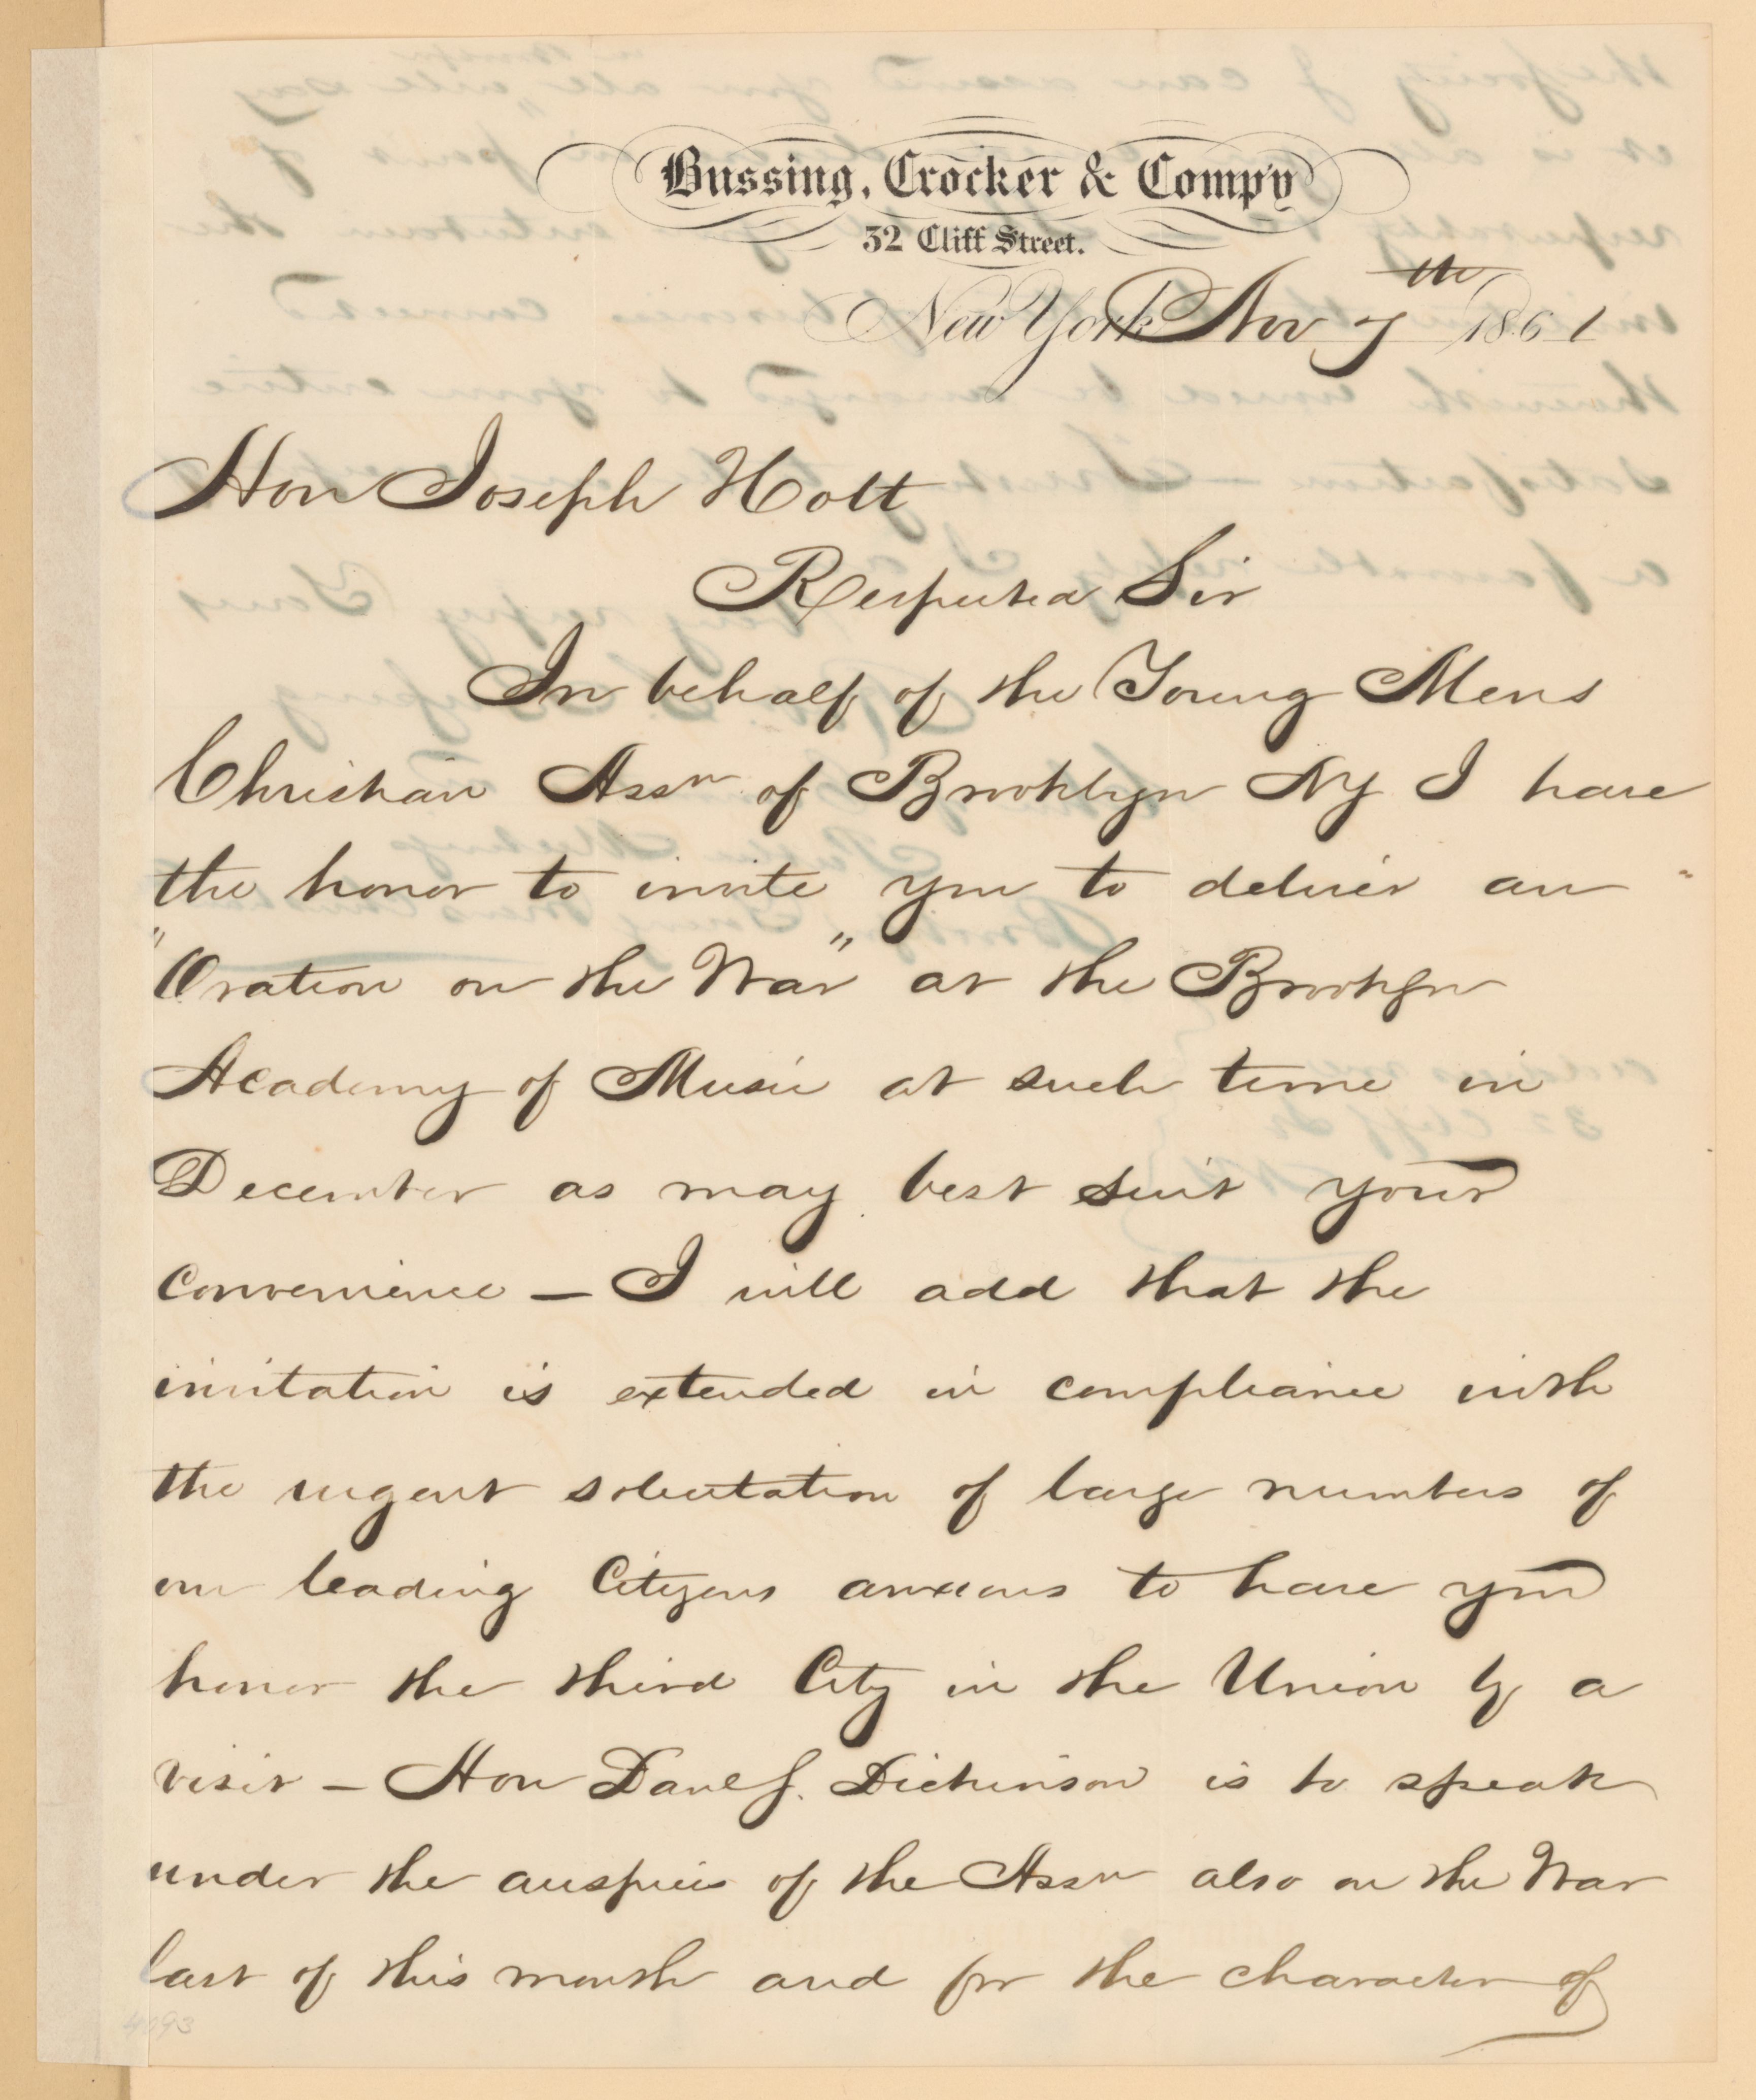 Bussing, Crocker & Compy
32 Cliff Street.
New York Nov 7th 1861
Hon Joseph Holt
Respected Sir
In behalf of the Young Mens
Christian Assn of Brooklyn NY I have
the honor to invite you to deliver an
"Oration on the War" at the Brooklyn
Academy of Music at such time in
December as may best suit your
convenience – I will add that the
invitation is extended in compliance with
the urgent solicitation of large numbers of
our leading Citizens anxious to have you
honor the third City in the Union by a
visit – Hon Danl S. Dickinson is to speak
under the auspices of the Assn also on the War
last of this month and for the character of
4093